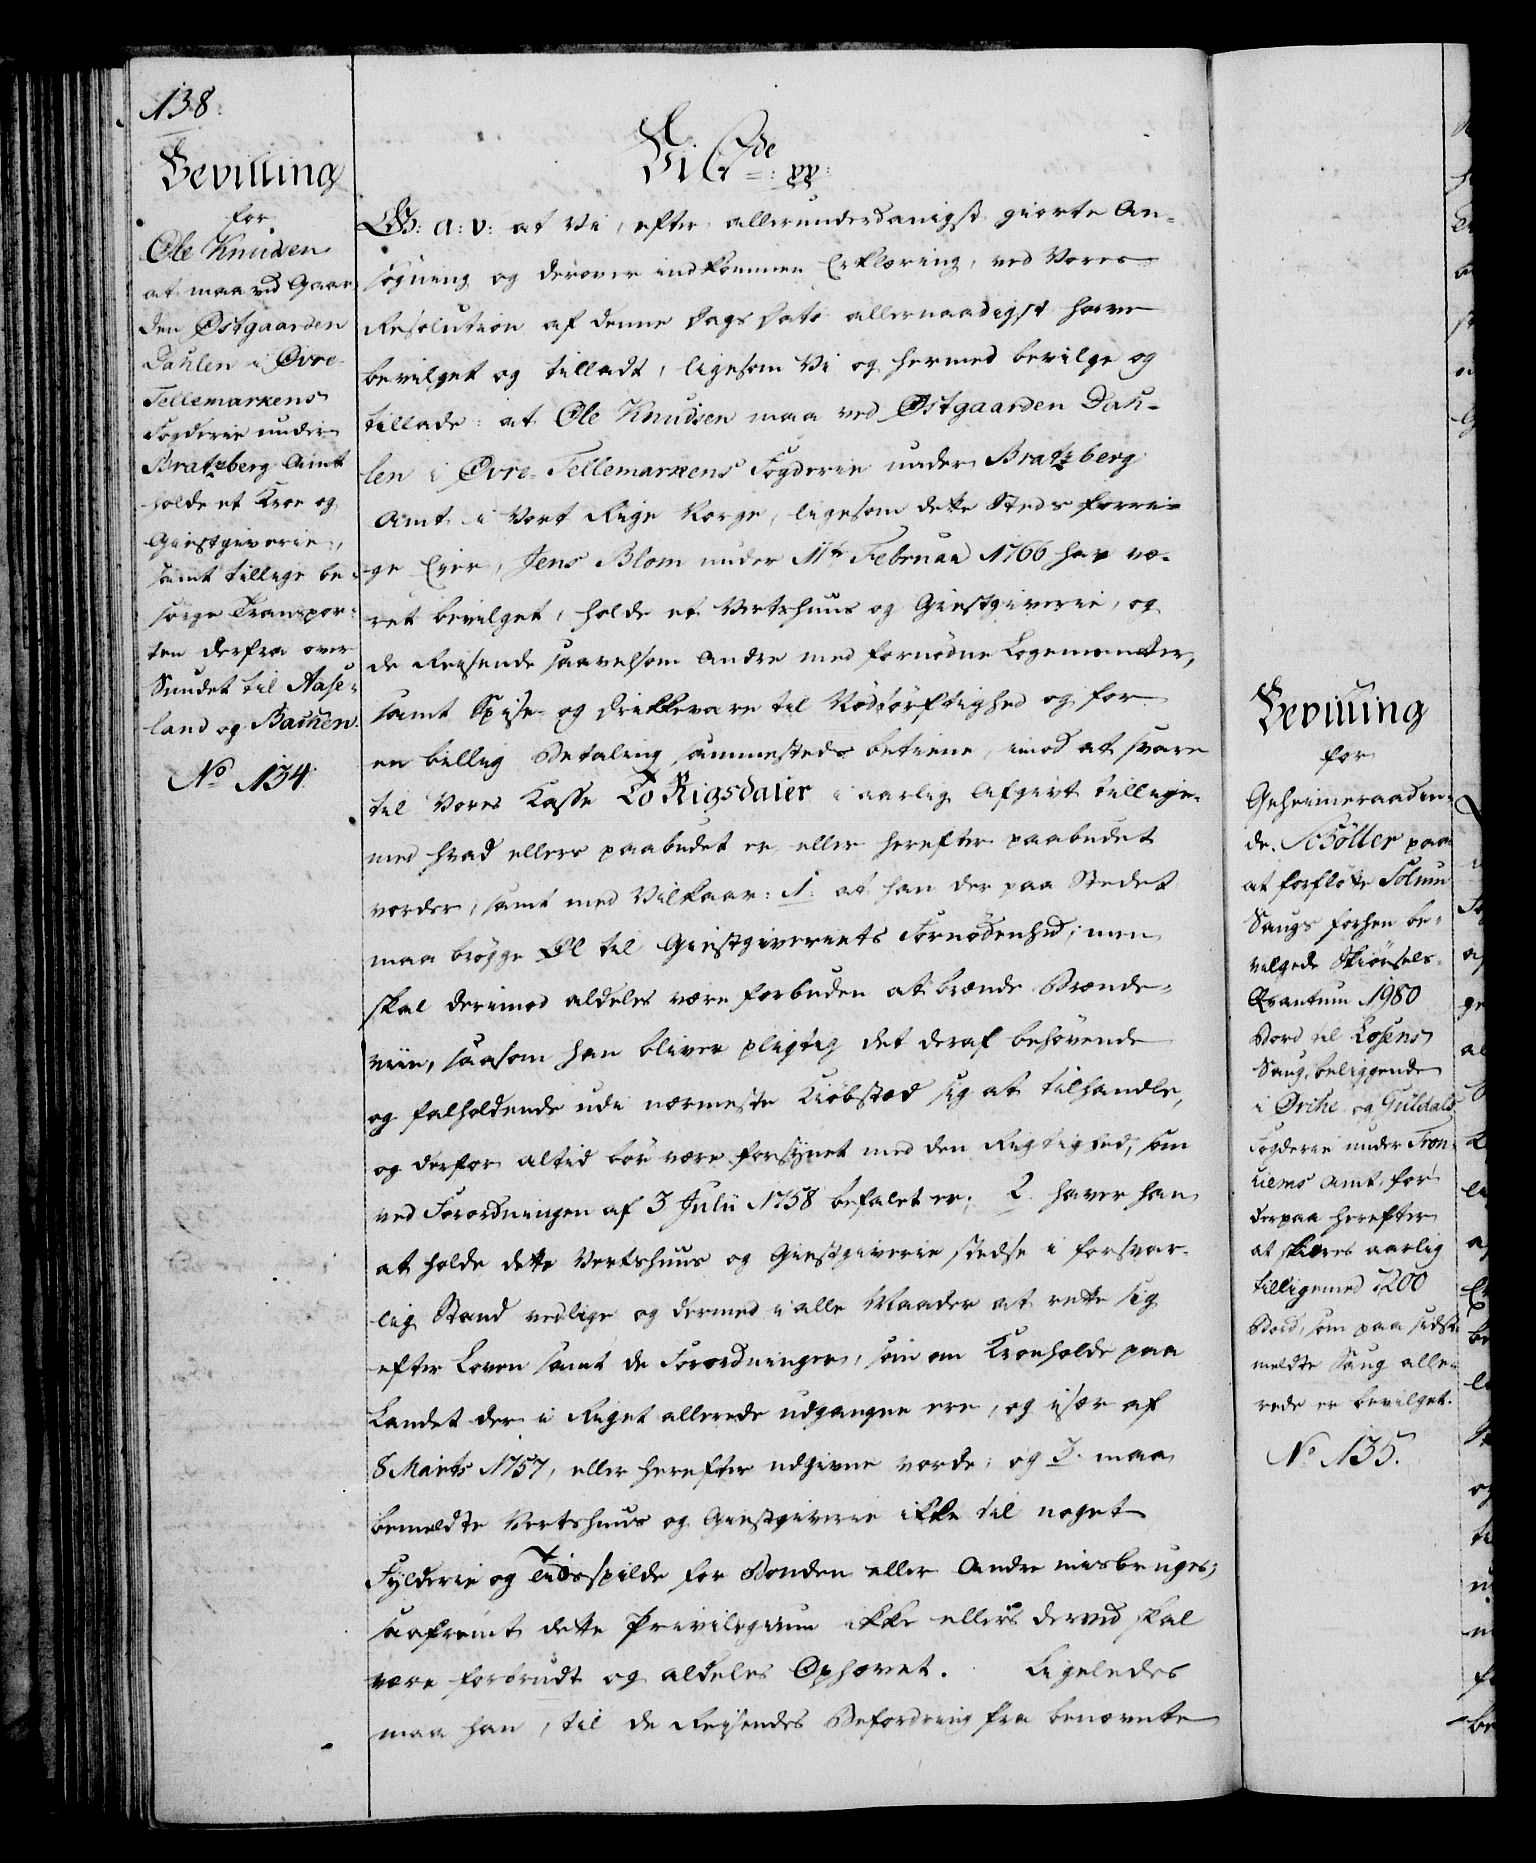 138.
Bevilling
for
Ole Knudsen
at maa ved Gaar-
den Østgaarden
Dahlen i Øvre-
Tellemarkens
Fogderie under
Bratzberg Amt
holde et Kroe og
Giestgiverie,
samt tillige be-
sørge Transpor-
ten derfra over
Sundet til Aase-
land og Bakken.
No 134.
Vi C 7de: pp:
G: a: v: at Vi, efter allerunderdanigst giorte An-
søgning og derover indkommen Erklæring, ved Vores
Resolution af denne Dags Dato allernaadigst have
bevilget og tilladt, ligesom Vi og hermed bevilge og
tillade: at Ole Knudsen maa ved Østgaarden Dah-
len i Øvre-Tellemarkens Fogderie under Bratzberg
Amt i Vort Rige Norge, ligesom dette Steds forri-
ge Eier, Jens Blom under 11te Februar 1766 har væ-
ret bevilget, holde et Vertshuus og Giestgiverie, og
de Reisende saavelsom Andre med fornødne Logementer,
samt Spise- og Drikkevare til Nødtørftighed og for
en billig Betaling sammesteds betiene, imod at svare
til Vores Kasse To Rigsdaler i aarlig Afgivt tillige-
med hvad ellers paabudet er, eller herefter paabudet
vorder, samt med Vilkaar: 1. at han der paa Stedet
maa brygge Øl til Giestgiveriets Fornødenhed; men
skal derimod aldeles være forbuden at brænde Brænde-
viin, saasom han bliver pligtig det deraf behøvende
og falholdende udi nærmeste Kiøbstæd sig at tilhandle,
og derfor altid bør være forsynet med den Rigtighed, som
ved Forordningen af 3 Julii 1758 befalet er; 2. haver han
at holde dette Vertshuus og Giestgiverie stedse i forsvar-
lig Stand vedlige og dermed i alle Maader at rette sig
efter Loven samt de Forordninger, som om Kroehold paa
Landet der i Riget allerede udgangne ere, og især af
8 Marts 1757, eller herefter udgivne vorde; og 3. maa
bemeldte Vertshuus og Giestgiverie ikke til noget
Fylderie og Tidsspilde for Bonden eller Andre misbruges;
saafremt dette Privilegium ikke ellers derved skal
være forbrudt og aldeles Ophævet. Ligeledes
maa han, til de Reisendes Befordring fra benævnte
Bevilling
for
Geheimeraadin-
de Schøller paa
at forfløtte Solum
Saugs forhen be-
vilgede Skiørsels-
Qvantum 1980
Bord til Losens
Saug, beliggende
i Ørke og Guldals
Fogderie under Tron-
hiems Amt, for
derpaa herefter
at skiæres aarlig
tilligemed 7200
Bord, som paa sidst-
meldte Saug alle-
rede er bevilget.
No 135.